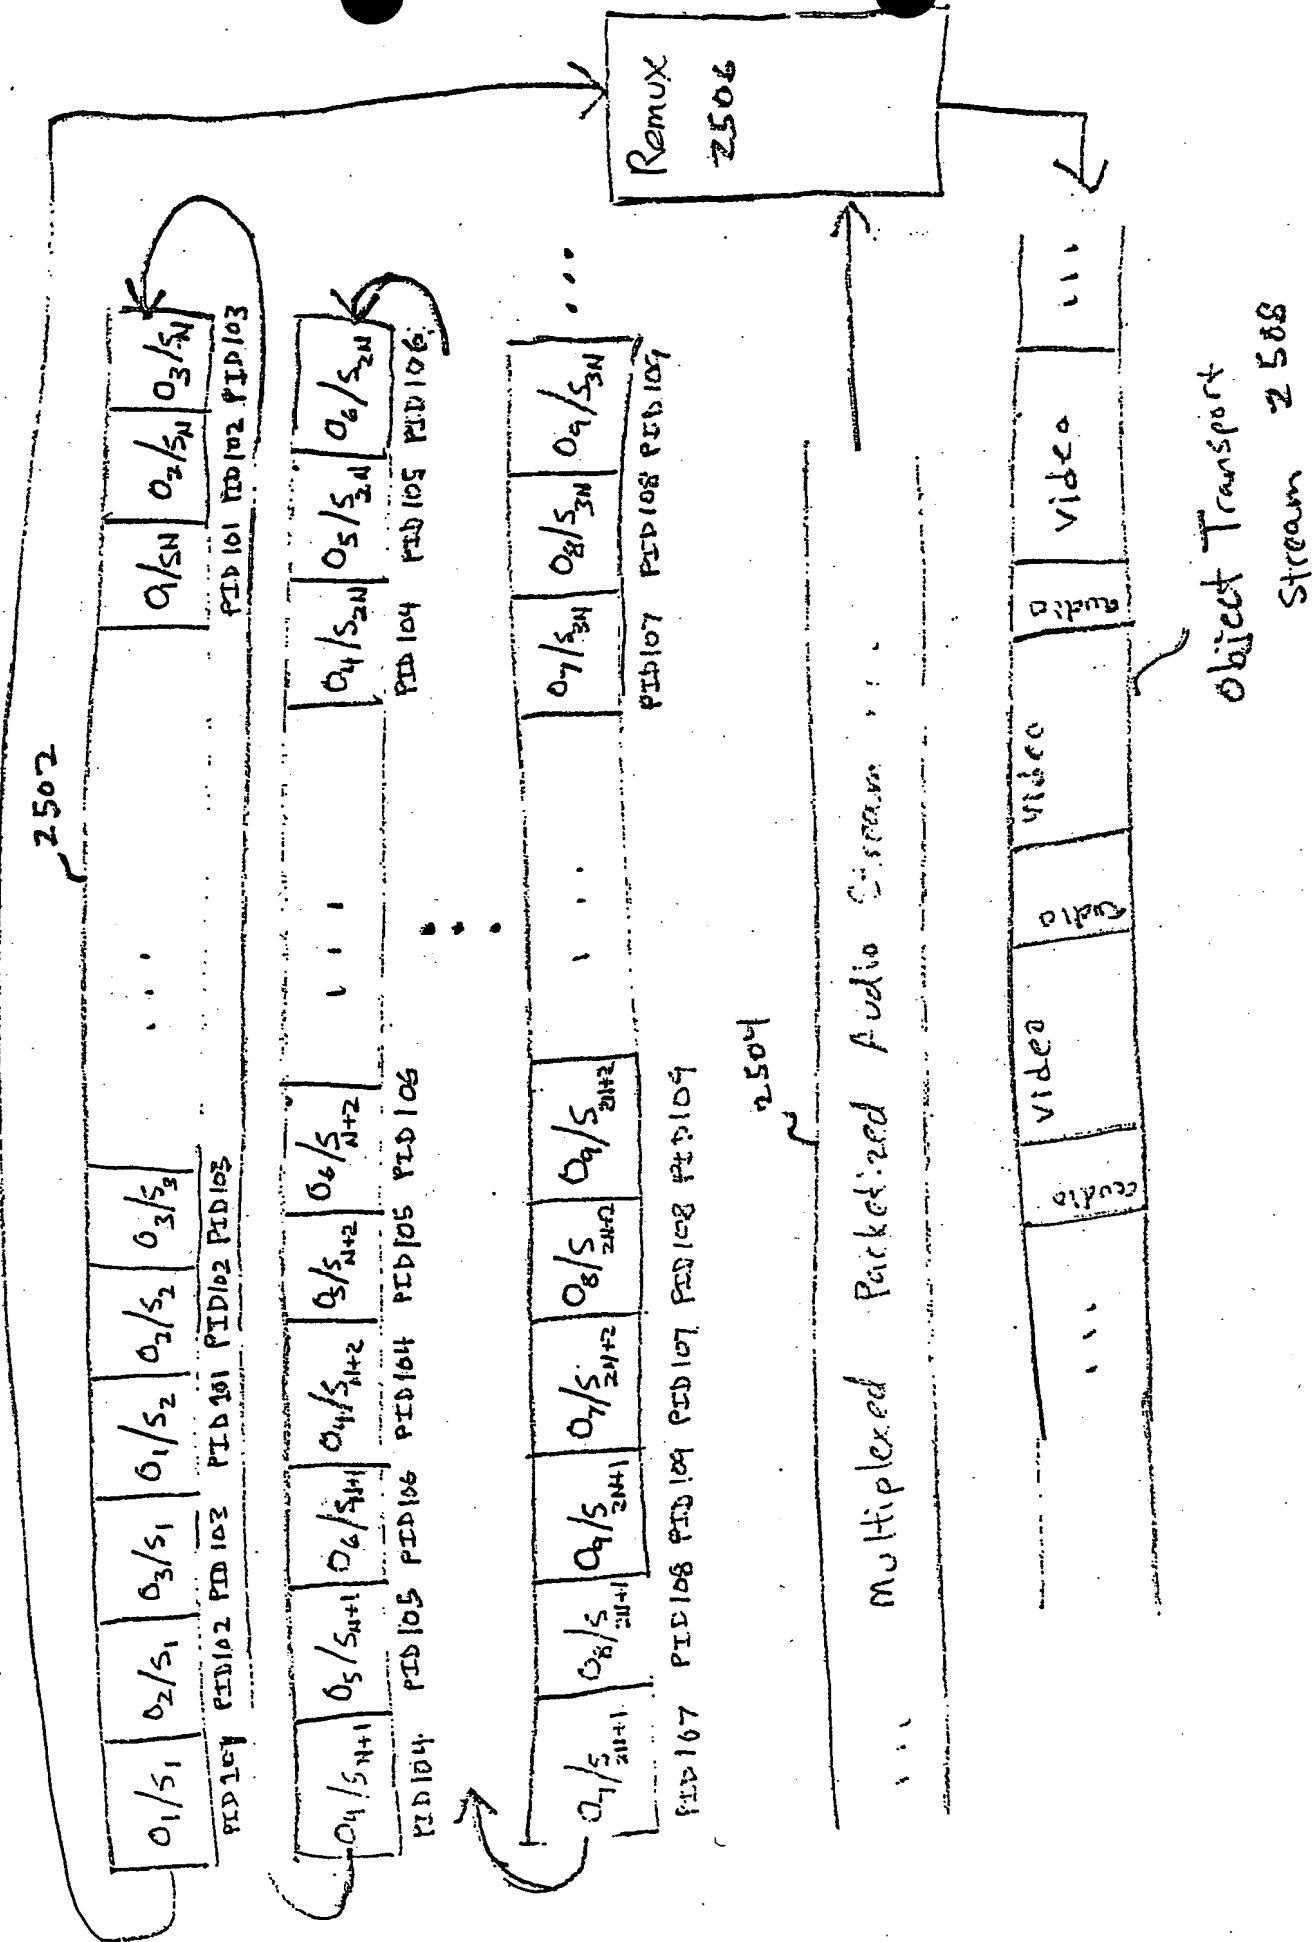 2502
O1/S1 O2/S1 O3/S1 O1/S2 O2/S2 O3/S3 ... O1/SN O2/SN O3/SN
PID101 PID102 PID103 PID101 PID102 PID103 PID101 PID102 PID103
O4/SN+1 O5/SN+1 O6/SN+1 O4/SN+2 O5/SN+2 O6/SN+2 ... O4/S2N O5/S2N O6/S2N
PID104 PID105 PID106 PID104 PID105 PID106 PID104 PID105 PID106
...
O7/S2N+1 O8/S2N+1 O9/S2N+1 O7/S2N+2 O8/S2N+2 O9/S2N+2 ... O7/S3N O8/S3N O9/S3N ...
PID107 PID108 PID109 PID107 PID108 PID109 PID107 PID108 PID109
Remux
2506
2504
... Multiplexed Packetized Audio Stream ...
... audio video audio video audio video ...
Object Transport
Stream 2508